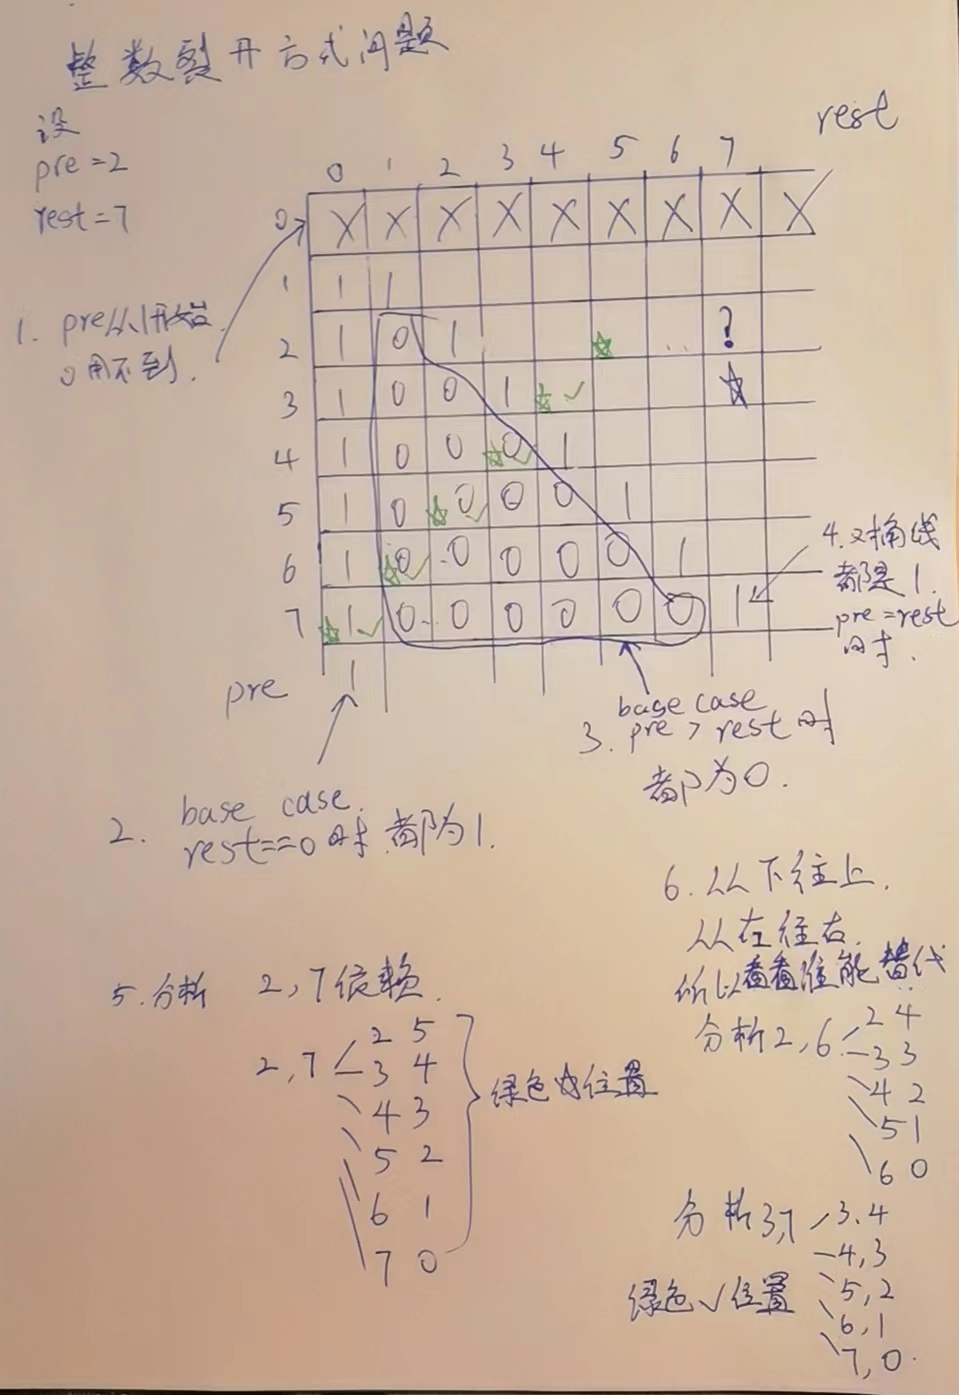 整数裂开方式问题
设
pre=2
rest=7
rest
0 1 2 3 4 5 6 7
0 X X X X X X X X X
1 1 1
2 1 0 1 ☆ .. ?
3 1 0 0 1 ☆ ✓ ☆
4 1 0 0 ☆0✓ 1
5 1 0 ☆0✓ 0 0 1
6 1 ☆0✓ 0 0 0 0 1
7 ☆1✓ 0 0 0 0 0 0 1
1
pre
1. pre从1开始
0用不到.
2. base case.
rest==0时都为1.
base case
3. pre > rest时
都为0.
4. 对角线
都是1.
pre=rest
时.
5.分析 2,7依赖.
2,7 2 5
3 4
4 3
5 2
6 1
7 0
绿色☆位置
6.从下往上.
从左往右.
所以看看谁能替代
分析2,6 2 4
3 3
4 2
5 1
6 0
分析3,7 3.4
4,3
5,2
6,1
7,0.
绿色✓位置